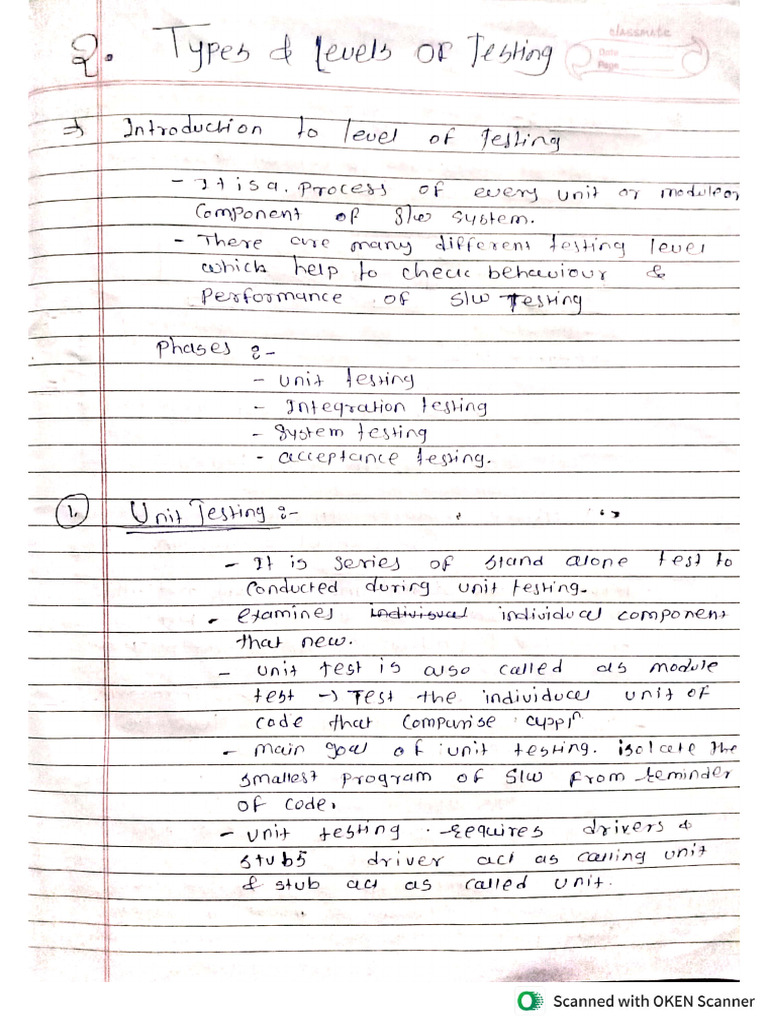 classmate
Date
Page
2. Types & Levels OF Testing
⇒ Introduction to level of Testing
- It is a. process of every unit or module or
component of S/w system.
- There are many different testing level
which help to check behaviour &
Performance of S/w Testing
Phases :-
- unit testing
- Integration testing
- System testing
- acceptance testing.
1. Unit Testing :-
- It is series of stand alone test to
conducted during unit testing.
- examines individual component
that new.
- unit test is also called as module
test → Test the individual unit of
code that compurise appln
- main goal of unit testing. isolcate the
smallest program of S/w from reminder
of code.
- unit testing requires drivers &
stubs driver act as calling unit
& stub act as called unit.
Scanned with OKEN Scanner